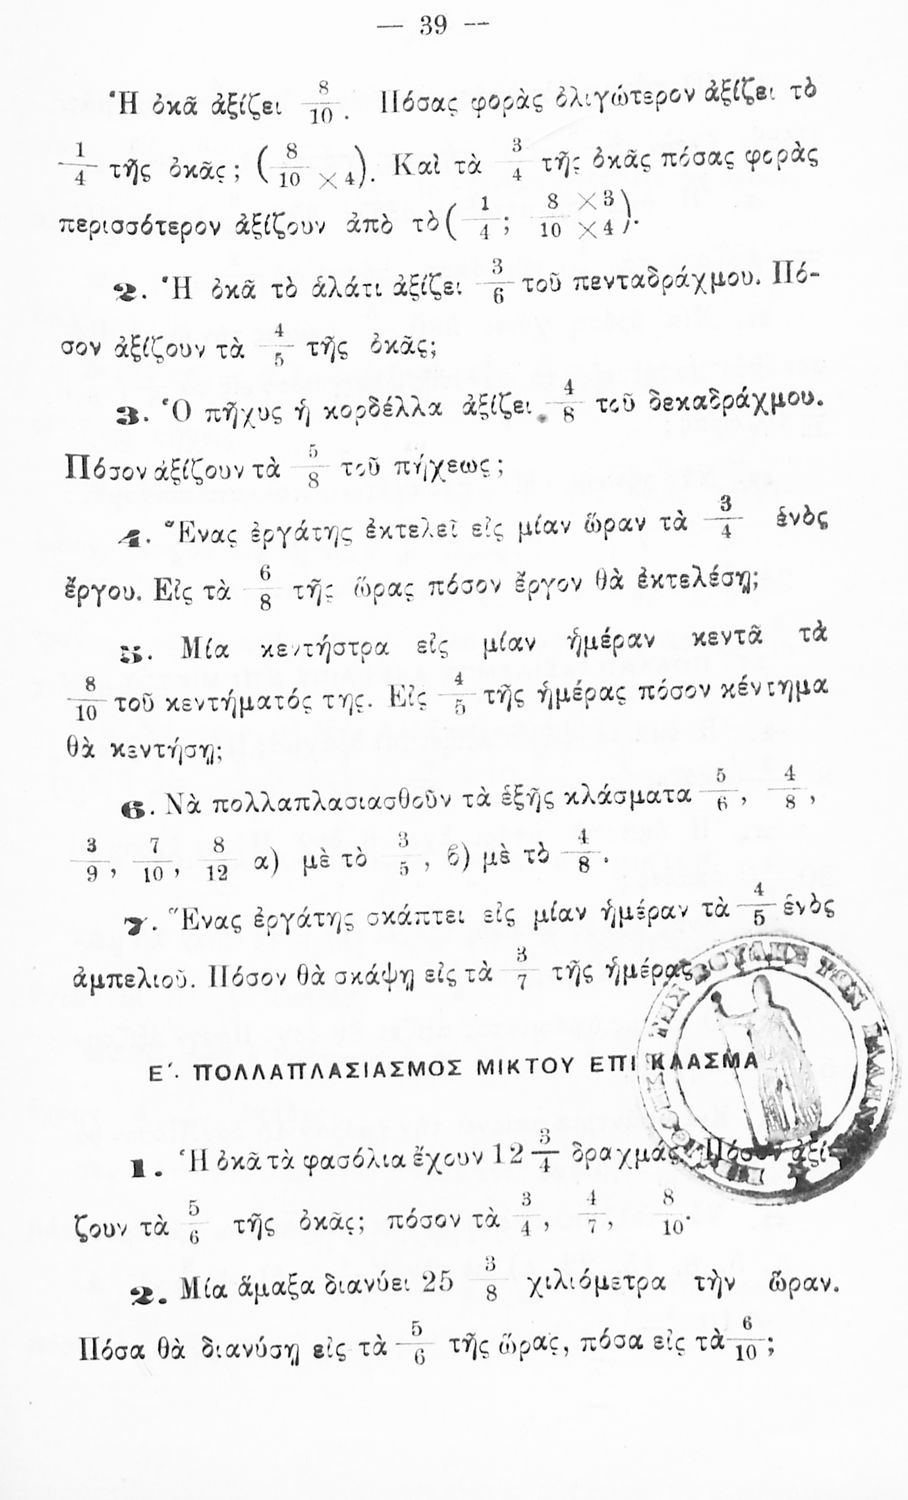 — 39 —
Ἡ ὀκᾶ ἀξίζει 8/10. Πόσας φορὰς ὀλιγώτερον ἀξίζει τὸ
1/4 τῆς ὀκᾶς; (8/10 × 4). Καὶ τὰ 3/4 τῆς ὀκᾶς πόσας φορὰς
περισσότερον ἀξίζουν ἀπὸ τὸ (1/4; 8 × 3/10 × 4).
2. Ἡ ὀκᾶ τὸ ἁλάτι ἀξίζει 3/6 τοῦ πενταδράχμου. Πό-
σον ἀξίζουν τὰ 4/5 τῆς ὀκᾶς;
3. Ὁ πῆχυς ἡ κορδέλλα ἀξίζει 4/8 τοῦ δεκαδράχμου.
Πόσον ἀξίζουν τὰ 5/8 τοῦ πήχεως;
4. Ἕνας ἐργάτης ἐκτελεῖ εἰς μίαν ὥραν τὰ 3/4 ἑνὸς
ἔργου. Εἰς τὰ 6/8 τῆς ὥρας πόσον ἔργον θὰ ἐκτελέσῃ;
5. Μία κεντήστρα εἰς μίαν ἡμέραν κεντᾶ τὰ
8/10 τοῦ κεντήματός της. Εἰς 4/5 τῆς ἡμέρας πόσον κέντημα
θὰ κεντήσῃ;
6. Νὰ πολλαπλασιασθοῦν τὰ ἑξῆς κλάσματα 5/6, 4/8,
3/9, 7/10, 8/12 α) μὲ τὸ 3/5, β) μὲ τὸ 4/8.
7. Ἕνας ἐργάτης σκάπτει εἰς μίαν ἡμέραν τὰ 4/5 ἑνὸς
ἀμπελιοῦ. Πόσον θὰ σκάψῃ εἰς τὰ 3/7 τῆς ἡμέρας
Ε΄. ΠΟΛΛΑΠΛΑΣΙΑΣΜΟΣ ΜΙΚΤΟΥ ΕΠΙ ΚΛΑΣΜΑ
1. Ἡ ὀκᾶ τὰ φασόλια ἔχουν 12 3/4 δραχμάς. Πόσον ἀξί-
ζουν τὰ 5/6 τῆς ὀκᾶς; πόσον τὰ 3/4, 4/7, 8/10.
2. Μία ἅμαξα διανύει 25 3/8 χιλιόμετρα τὴν ὥραν.
Πόσα θὰ διανύσῃ εἰς τὰ 5/6 τῆς ὥρας, πόσα εἰς τὰ 6/10;